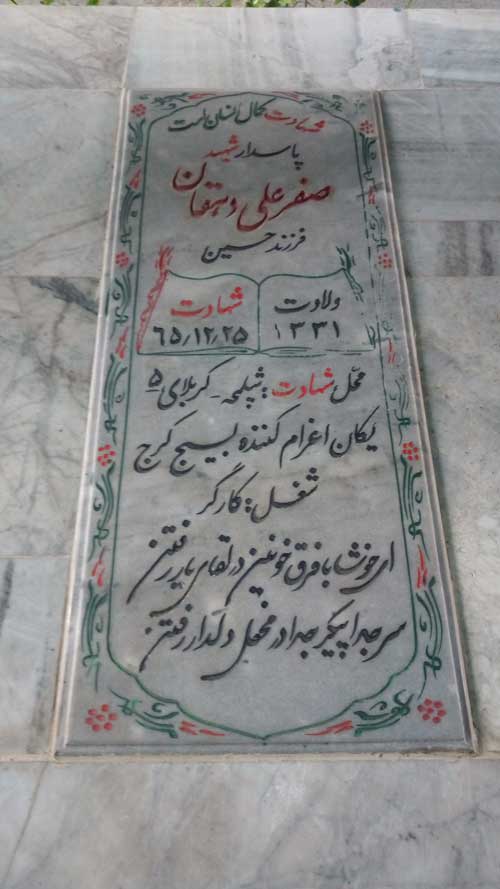 شهادت کمال انسان است
پاسدار شهید
صفر علی دهقان
فرزند حسین
ولادت
۱۳۳۱
شهادت
۶۵٫۱۲٫۲۵
محل شهادت: شلمچه - کربلای ۵
یکان اعزام کننده بسیج کرج
شغل: کارگر
ای خوشا با فرق خونین در لقای یار رفتن
سر جدا پیکر جدا در محفل دلدار رفتن